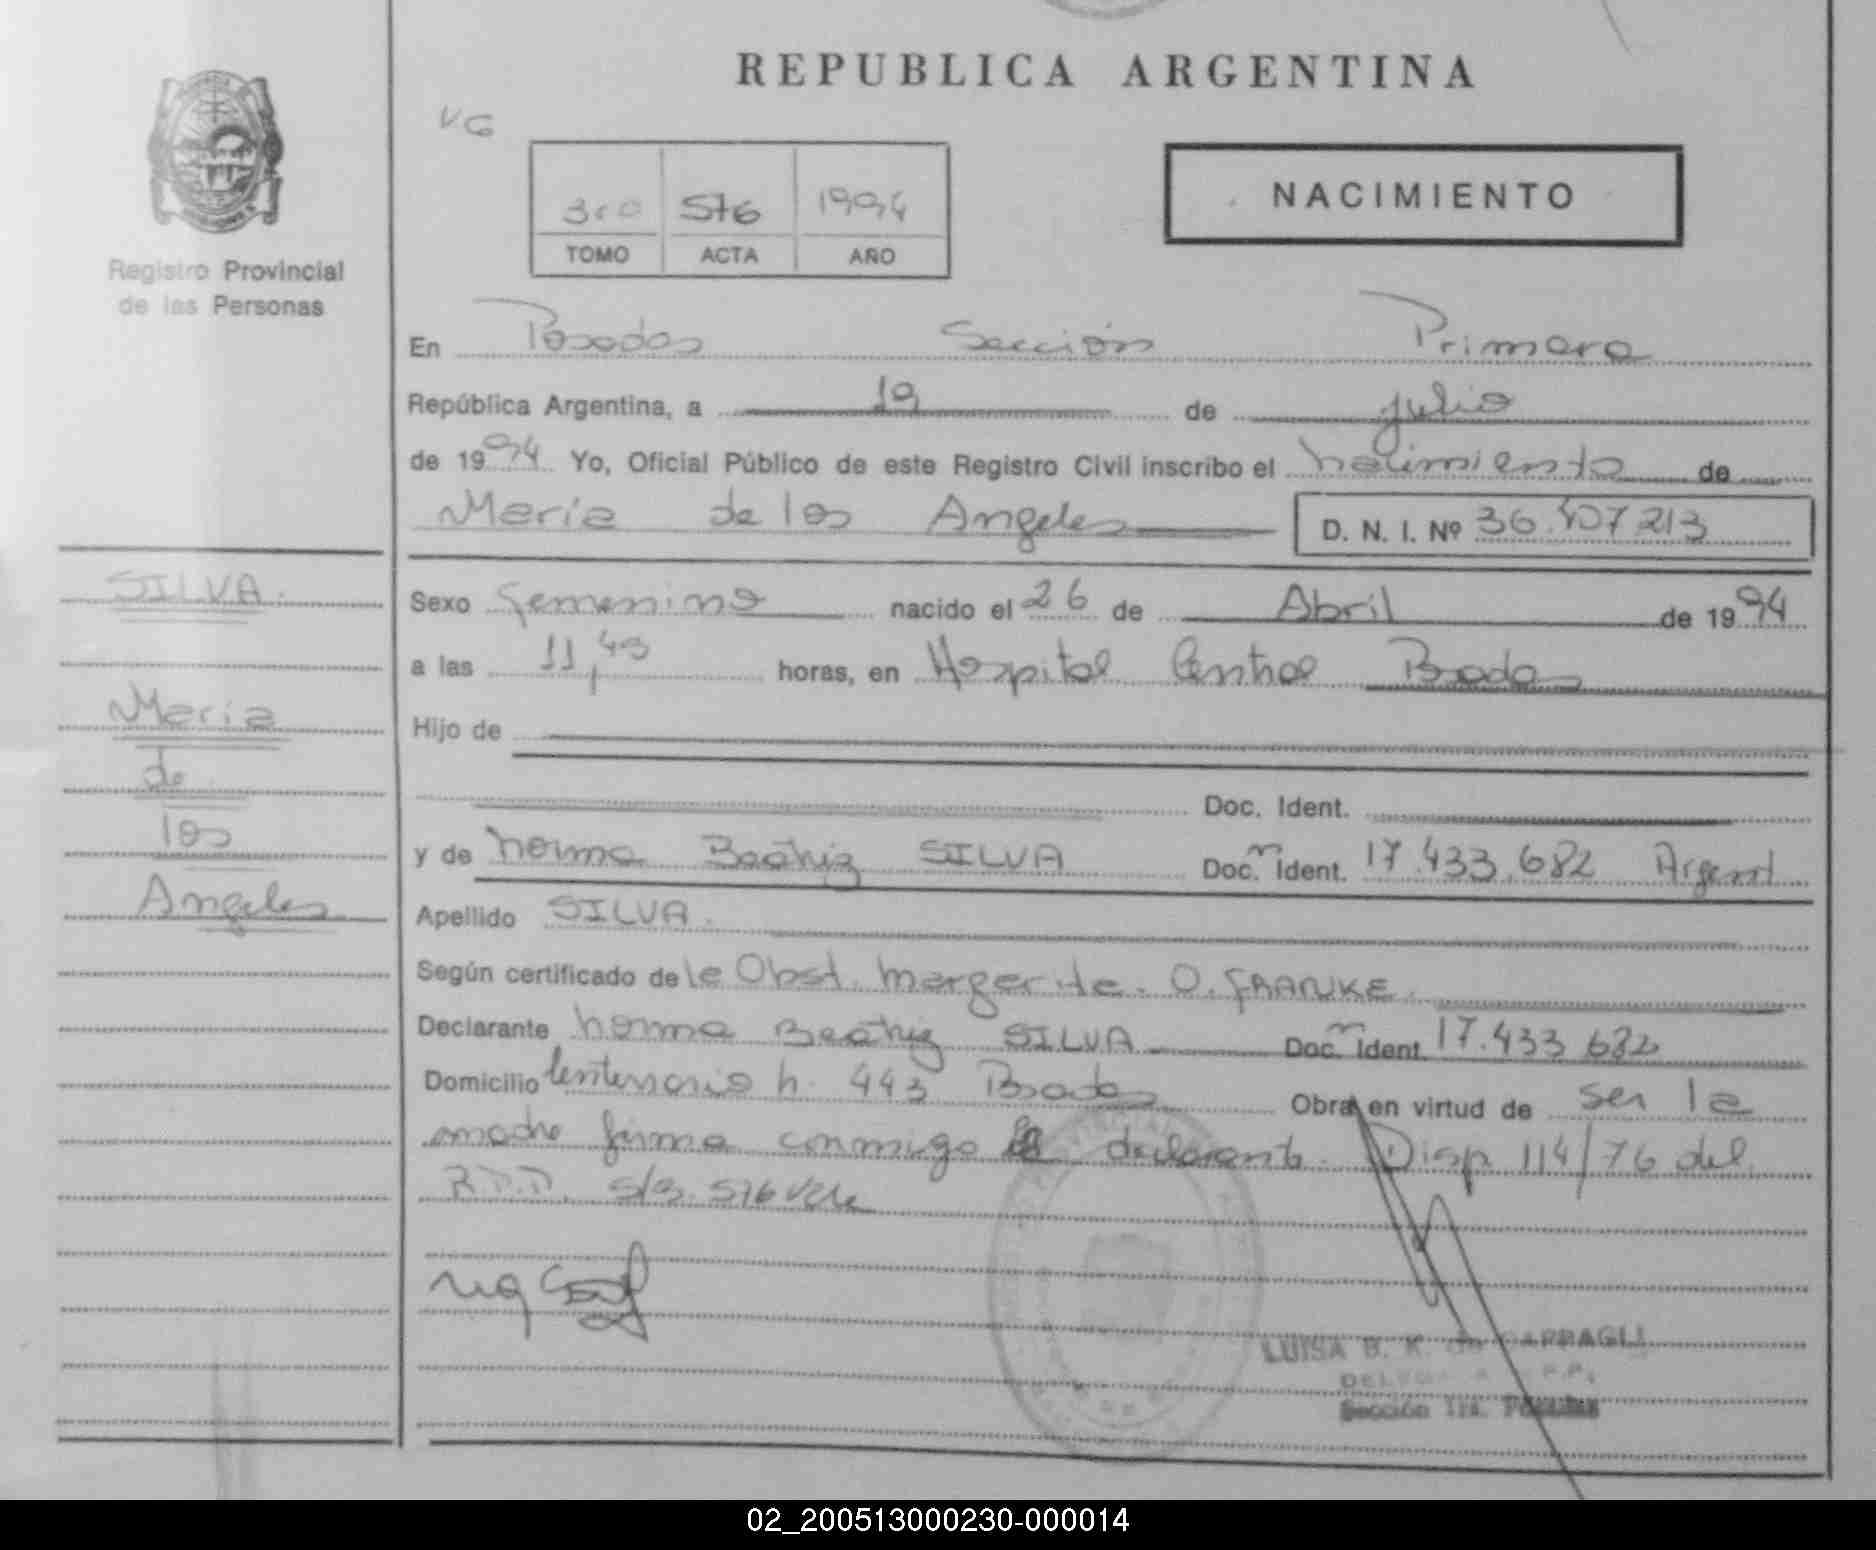 REPUBLICA ARGENTINA
VG
3ro 576 1994
TOMO ACTA AÑO
NACIMIENTO
Registro Provincial
de las Personas
En Posadas Sección Primera
República Argentina, a 19 de julio
de 1994 Yo, Oficial Público de este Registro Civil inscribo el nacimiento de
María de los Angeles D. N. I. Nº
SILVA.
María
de
los
Angeles
Sexo femenino nacido el 26 de Abril de 1994
a las 11,45 horas, en Hospital Central Posadas
Hijo de
Doc. Ident.
y de Norma Beatriz SILVA Doc. Ident. 17.433.682 Argent
Apellido SILVA.
Según certificado de la Obst. Margarita. O. FRANKE.
Declarante Norma Beatriz SILVA Doc. Ident. 17.433.682
Domicilio Centenario N. 443 Posadas Obra en virtud de ser la
madre firma conmigo la declarante. Disp 114/76 del
LUISA B. K. de
Sección 1ra.
02_200513000230-000014